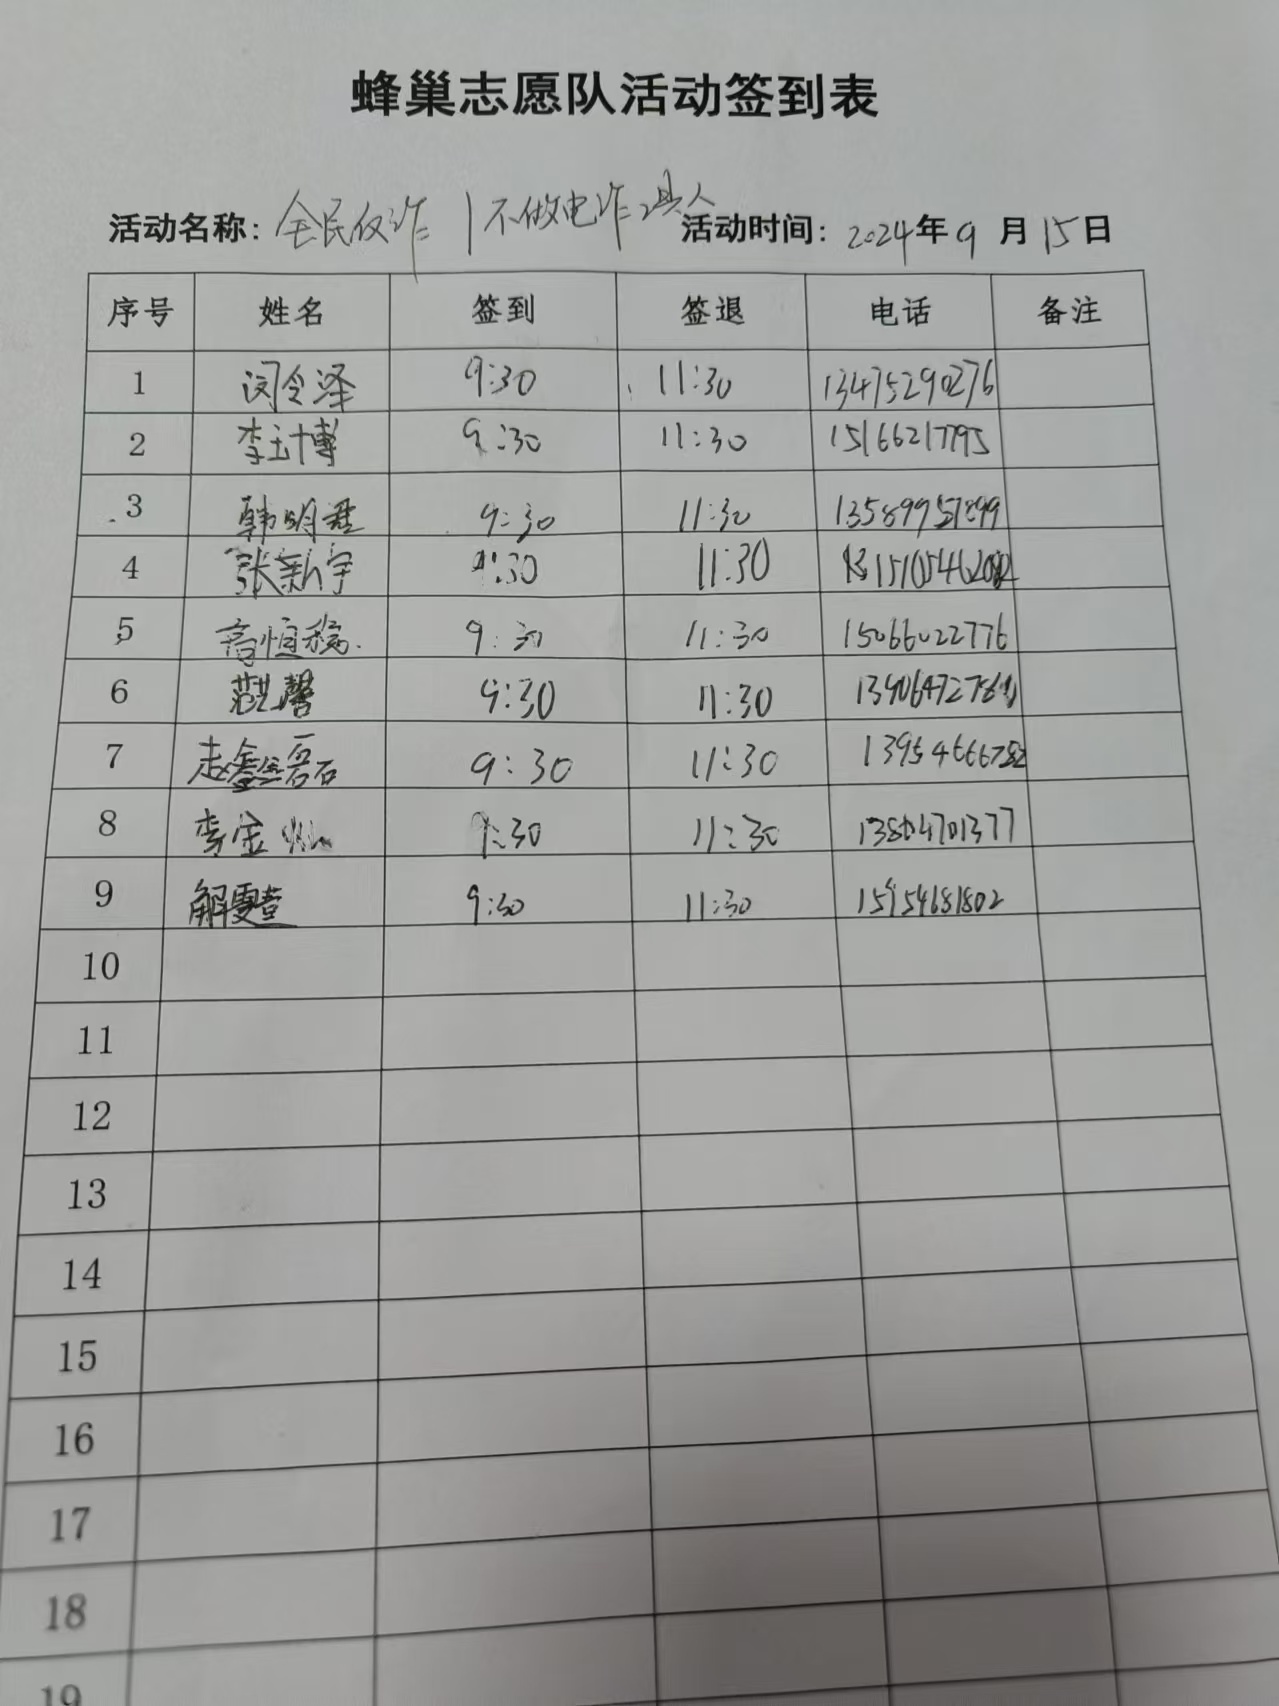 蜂巢志愿队活动签到表
活动名称：全民反诈 | 不做电诈工具人 活动时间：2024年9月15日
序号 姓名 签到 签退 电话 备注
1 闵令泽 9:30 11:30 13475290276
2 李钰博 9:30 11:30 15166217795
3 韩明君 9:30 11:30 13589951899
4 张新宇 9:30 11:30 15105462082
5 高恒稳 9:30 11:30 15066022776
6 9:30 11:30
7 赵鑫磊 9:30 11:30
8 李金灿 9:30 11:30 13804701377
9 解雯萱 9:30 11:30 15954681802
10
11
12
13
14
15
16
17
18
19